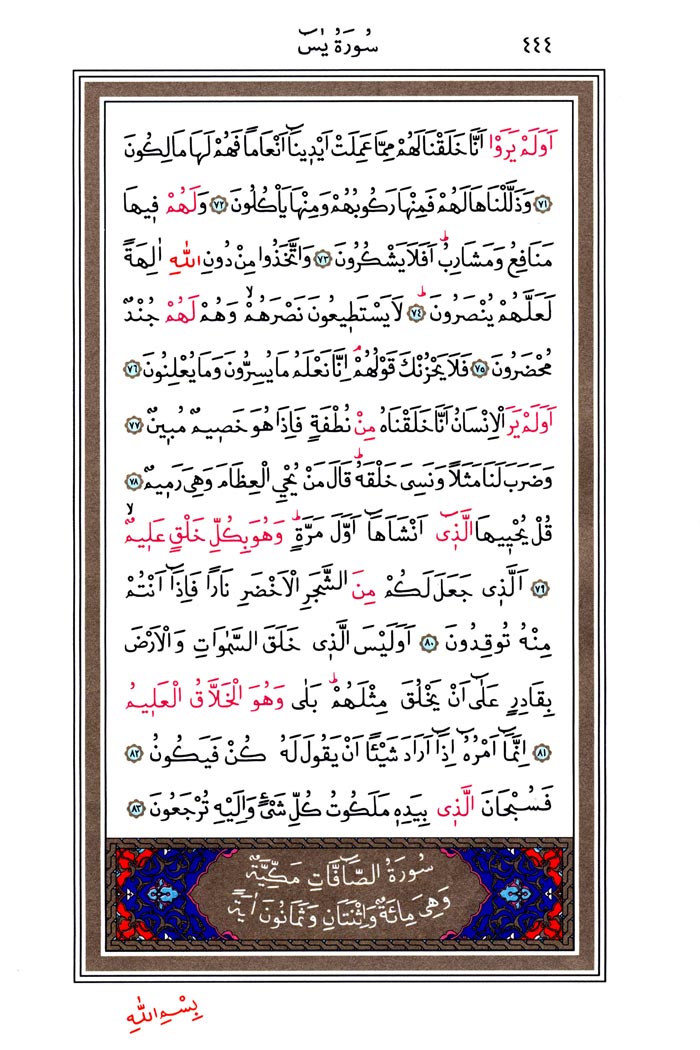 ٤٤٤ سُورَةُ يٰسٓ
اَوَلَمْ يَرَوْا اَنَّا خَلَقْنَا لَهُمْ مِمَّا عَمِلَتْ اَيْدٖينَٓا اَنْعَاماً فَهُمْ لَهَا مَالِكُونَ
﴿٧١﴾ وَذَلَّلْنَاهَا لَهُمْ فَمِنْهَا رَكُوبُهُمْ وَمِنْهَا يَأْكُلُونَ ﴿٧٢﴾ وَلَهُمْ فٖيهَا
مَنَافِعُ وَمَشَارِبُؕ اَفَلَا يَشْكُرُونَ ﴿٧٣﴾ وَاتَّخَذُوا مِنْ دُونِ اللّٰهِ اٰلِهَةً
لَعَلَّهُمْ يُنْصَرُونَؕ ﴿٧٤﴾ لَا يَسْتَطٖيعُونَ نَصْرَهُمْۙ وَهُمْ لَهُمْ جُنْدٌ
مُحْضَرُونَ ﴿٧٥﴾ فَلَا يَحْزُنْكَ قَوْلُهُمْۘ اِنَّا نَعْلَمُ مَا يُسِرُّونَ وَمَا يُعْلِنُونَ ﴿٧٦﴾
اَوَلَمْ يَرَ الْاِنْسَانُ اَنَّا خَلَقْنَاهُ مِنْ نُطْفَةٍ فَاِذَا هُوَ خَصٖيمٌ مُبٖينٌ ﴿٧٧﴾
وَضَرَبَ لَنَا مَثَلاً وَنَسِىَ خَلْقَهُؕ قَالَ مَنْ يُحْيِ الْعِظَامَ وَهِىَ رَمٖيمٌ ﴿٧٨﴾
قُلْ يُحْيٖيهَا الَّذٖٓى اَنْشَاَهَٓا اَوَّلَ مَرَّةٍؕ وَهُوَ بِكُلِّ خَلْقٍ عَلٖيمٌۙ
﴿٧٩﴾ اَلَّذٖى جَعَلَ لَكُمْ مِنَ الشَّجَرِ الْاَخْضَرِ نَاراً فَاِذَٓا اَنْتُمْ
مِنْهُ تُوقِدُونَ ﴿٨٠﴾ اَوَلَيْسَ الَّذٖى خَلَقَ السَّمٰوَاتِ وَالْاَرْضَ
بِقَادِرٍ عَلٰٓى اَنْ يَخْلُقَ مِثْلَهُمْؕ بَلٰى وَهُوَ الْخَلَّاقُ الْعَلٖيمُ
﴿٨١﴾ اِنَّمَٓا اَمْرُهُٓ اِذَٓا اَرَادَ شَيْـٔاً اَنْ يَقُولَ لَهُ كُنْ فَيَكُونُ ﴿٨٢﴾
فَسُبْحَانَ الَّذٖى بِيَدِهٖ مَلَكُوتُ كُلِّ شَىْءٍ وَاِلَيْهِ تُرْجَعُونَ ﴿٨٣﴾
سُورَةُ الصَّٓافَّاتِ مَكِّيَّةٌ
وَهِىَ مِائَةٌ وَاِثْنَتَانِ وَثَمَانُونَ اٰيَةً
بِسْمِ اللّٰهِ